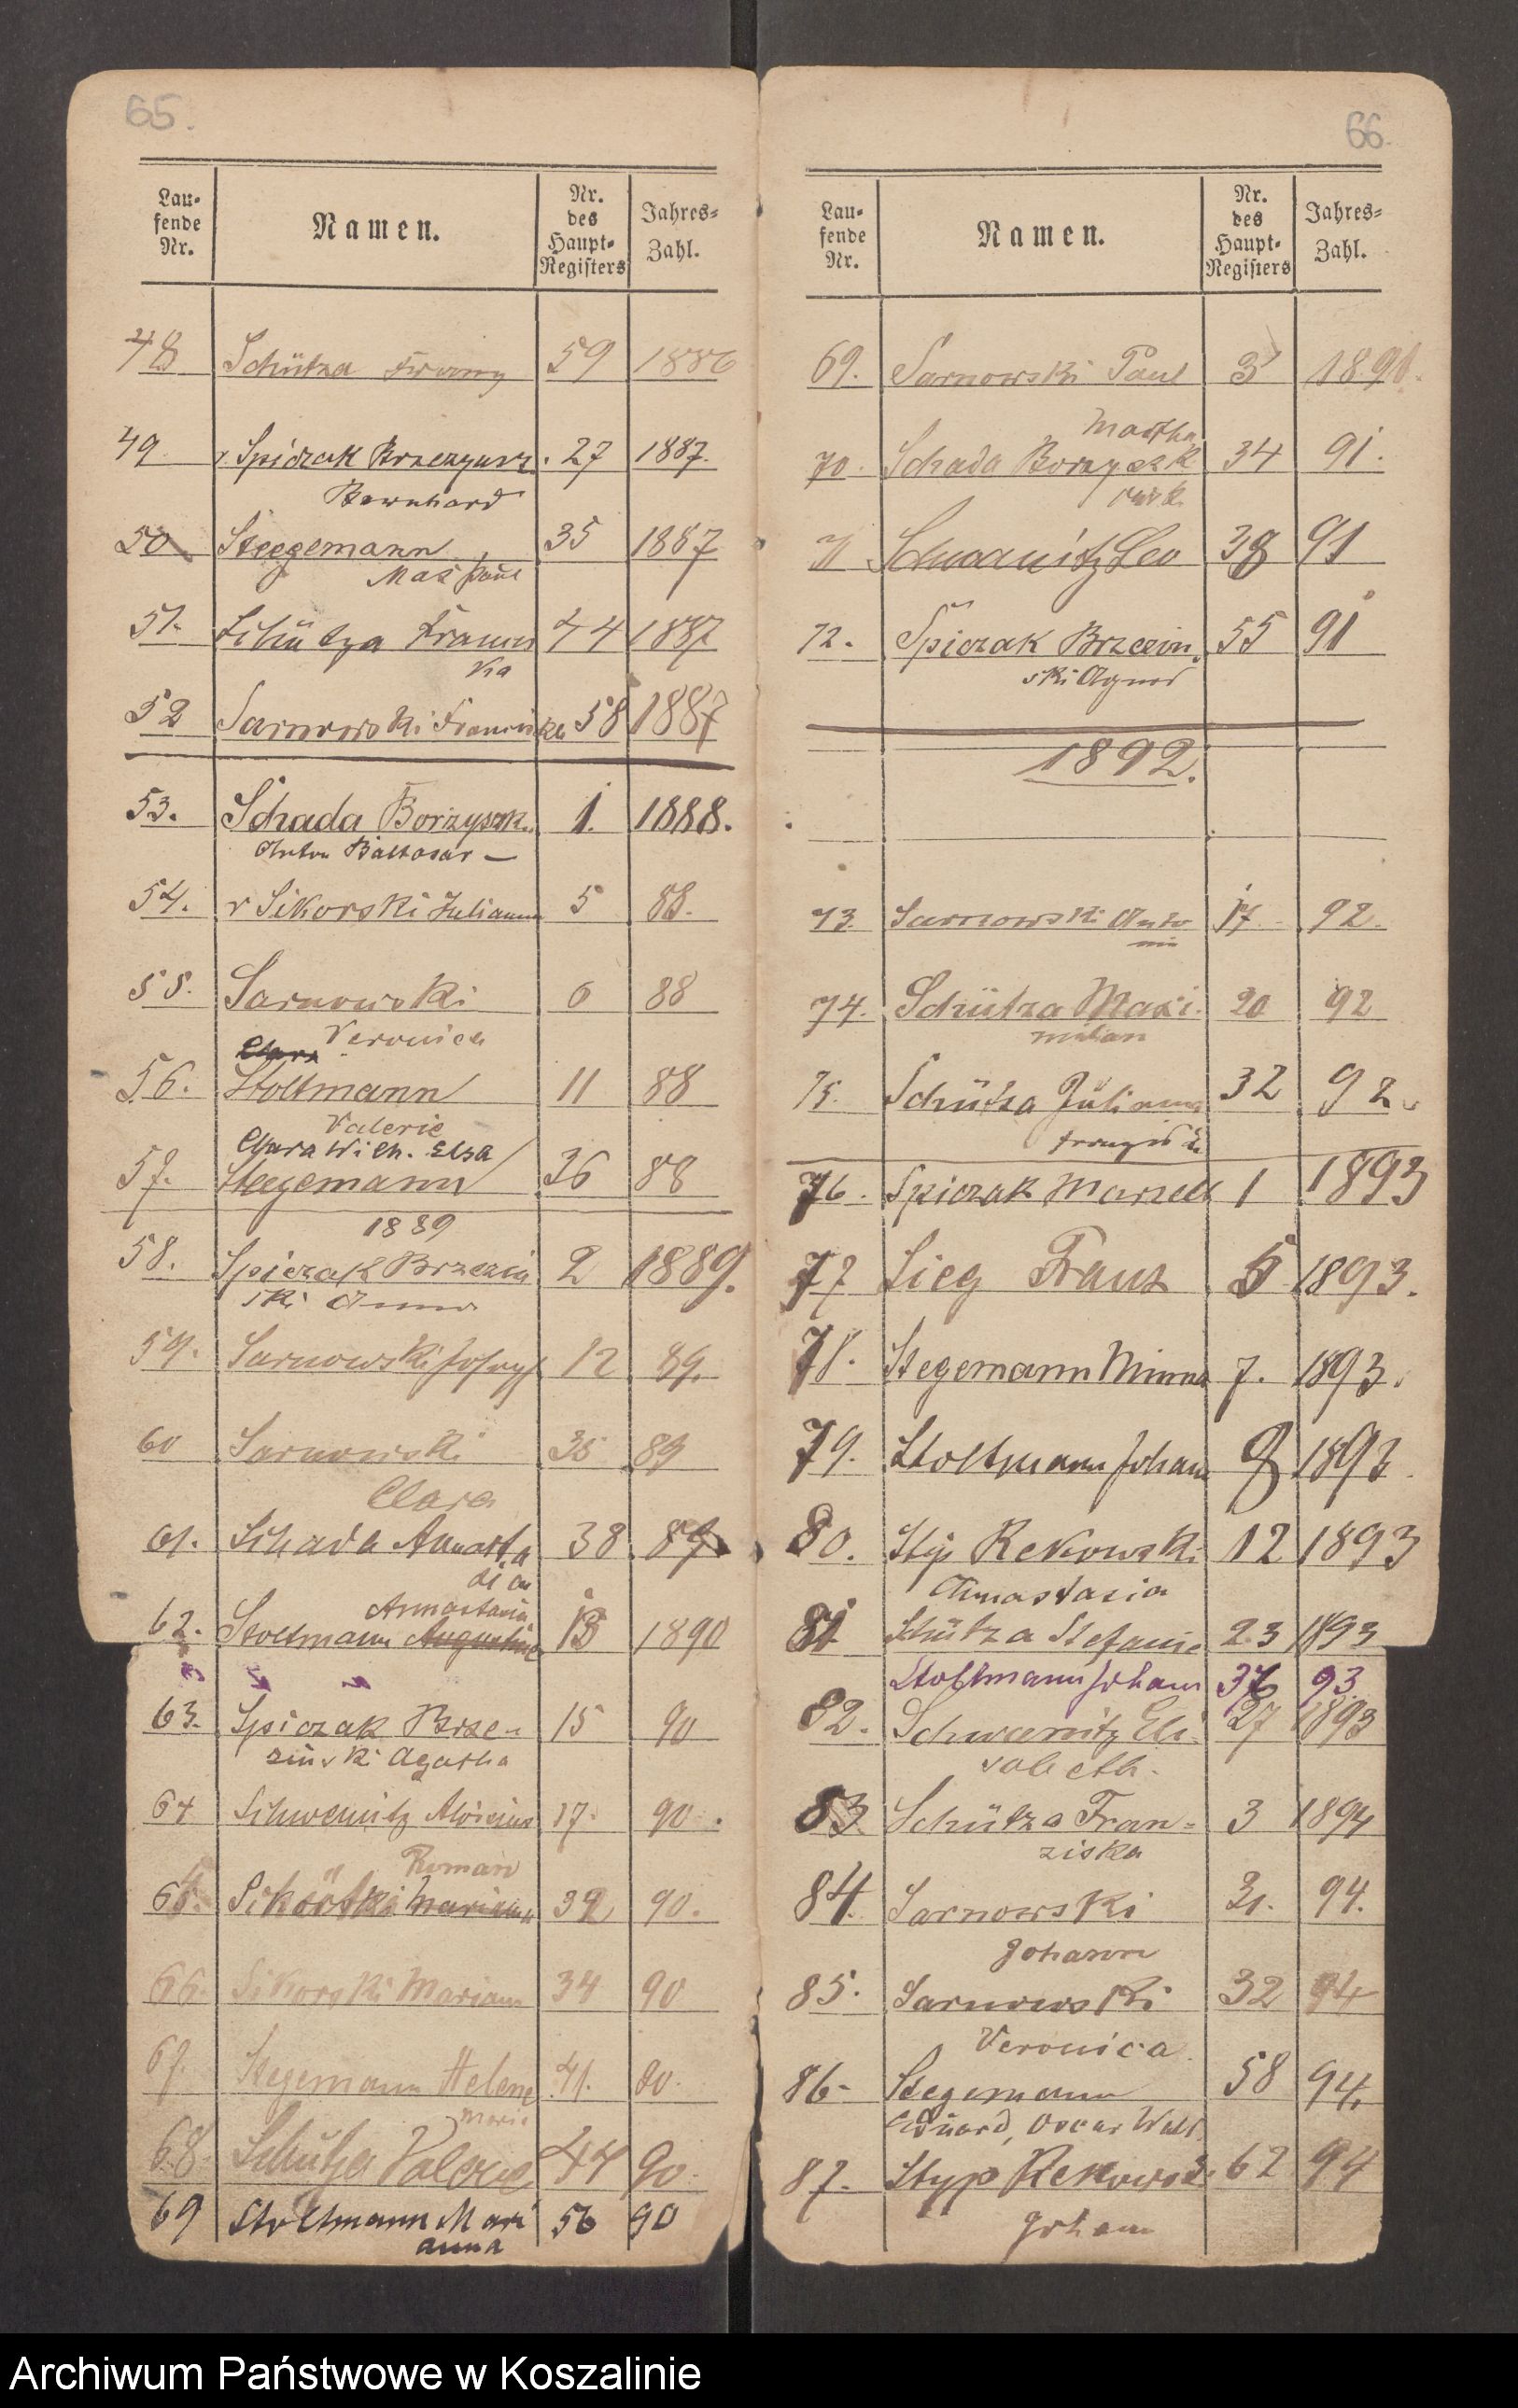 65.
Lau-
fende
Nr.
Namen.
Nr.
des
Haupt-
Registers
Jahres-
Zahl.
48 Schütza 59 1886
49 v. Spiczak 27 1887.
Bernhard
50 Steegemann 35 1887
Max Paul
51. Schütza 44 1887
ka
52 Sarnowski 58 1887
53. Schada Borzyszk. 1. 1888.
Anton Baltasar —
54. v Sikorski Julianna 5 88.
55. Sarnowski 6 88
Veronica
Clara
56. Stoltmann 11 88
Valerie
Clara Wilh. Elsa
57. Stegemann 36 88
1889
58. Spiczak Brzezin 2 1889.
ski Anna
59. Sarnowski Joseph 12 89.
60 Sarnowski 35 89
Clara
61. Schada Anasta 38 89
Annastasia
62. Stoltmann Augustine 13 1890
63. Spiczak Brze- 15 90
zinski Agatha
64 Schwemitz Aloisius 17. 90.
Roman
65. Sikorski Mariann 32 90.
66. Sikorski Mariann 34 90
67. Stegemann Helene 41. 90.
Marie
68 Schütza Valerie 44 90.
69 Stoltmann Mari 56 90
anna
66.
Lau-
fende
Nr.
Namen.
Nr.
des
Haupt-
Registers
Jahres-
Zahl.
69. Sarnowski Paul 3 1891.
Martha
70. Schada Borzyszk 34 91.
71 Schwanitz Leo 38 91
72. Spiczak Brzezin. 55 91
ski Agnes
1892.
73. Sarnowski Anto 17. 92.
nie
74. Schütza Maxi. 20 92
milian
75. Schütza Julianna 32 92.
76. Spiczak Marzell 1 1893
77 Sieg Franz 5 1893.
78. Stegemann Minna 7. 1893.
79. Stoltmann Johann 8 1893.
80. Styp Rekowski 12 1893
Annastasia
81. Schütza Stefanie 23 1893
Stoltmann Johann 37 93.
82. Schwemitz Eli- 27 1893
sabeth.
83. Schütza Fran- 3 1894
ziska
84. Sarnowski 21. 94.
Johann
85. Sarnowski 32 94
Veronica.
86- Stegemann 58 94.
Eduard, Oscar Walt.
87. Styp Rekowski 62 94
Johann
Archiwum Państwowe w Koszalinie